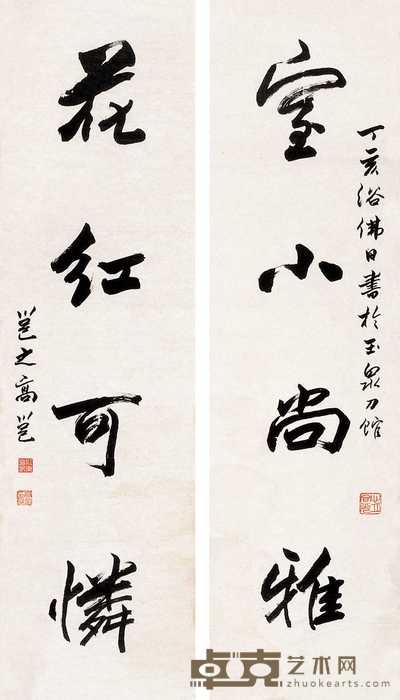 丁亥浴佛日書於玉泉刀館
室小尚雅
花紅可憐
邕之高邕
卓克艺术网
zhuokearts.com